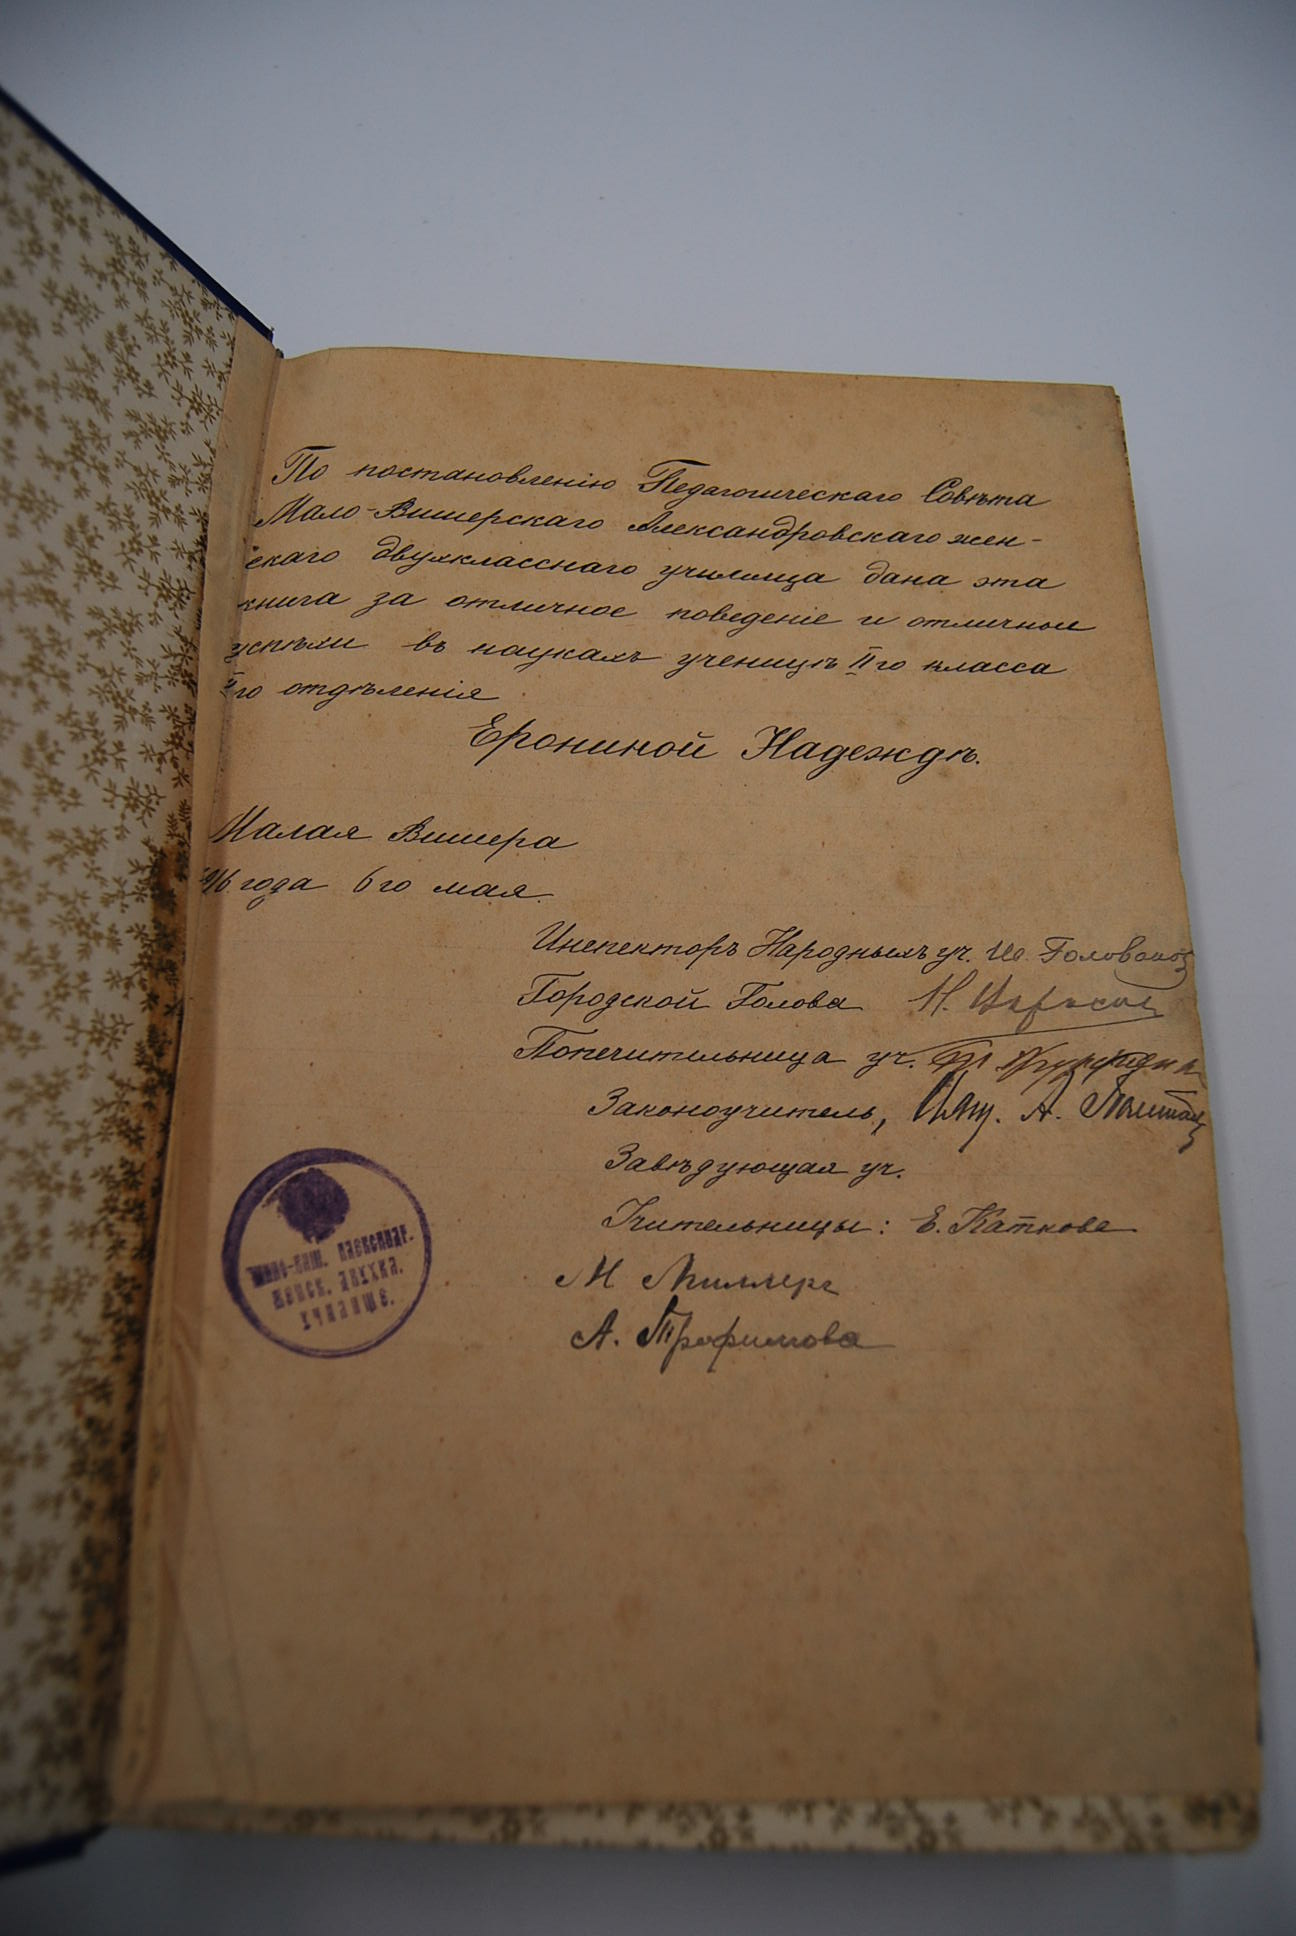 По постановленію Педагогическаго Совѣта
Мало-Вишерскаго Александровскаго жен-
скаго двухкласснаго училища дана эта
книга за отличное поведеніе и отличные
успѣхи въ наукахъ ученицѣ IIго класса
го отдѣленія
Ерониной Надеждѣ.
Малая Вишера
1916 года 6го мая.
Инспекторъ Народныхъ уч. Ив. Головановъ
Городской Голова Н.
Попечительница уч.
Законоучитель, А.
Завѣдующая уч.
Учительницы: Е. Каткова
М Миллеръ
А. Трофимова
Мало-Виш. Александр.
женск. двухкл.
училище.